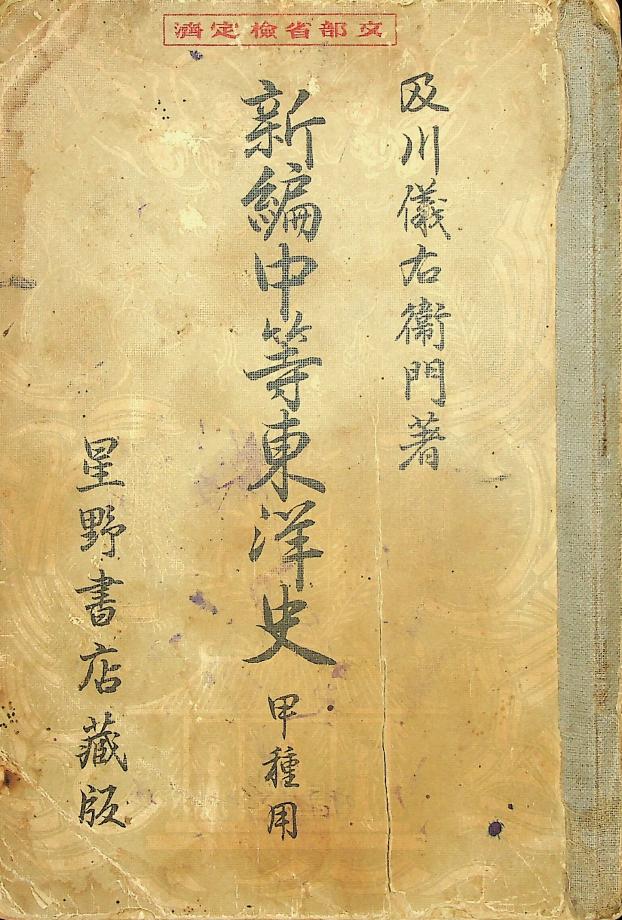 文部省檢定濟
及川儀右衞門著
新編中等東洋史 甲種用
星野書店藏版